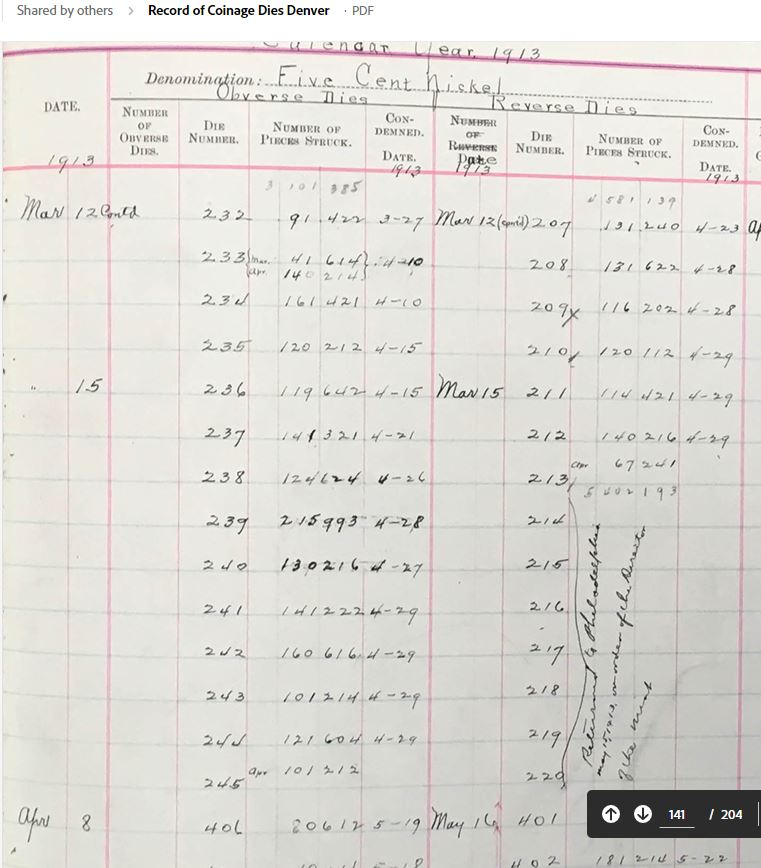 Shared by others > Record of Coinage Dies Denver · PDF
Calendar Year, 1913
Denomination: Five Cent Nickel
Obverse Dies Reverse Dies
DATE. NUMBER OF OBVERSE DIES. DIE NUMBER. NUMBER OF PIECES STRUCK. CON-DEMNED. DATE. NUMBER OF REVERSE Date DIE NUMBER. NUMBER OF PIECES STRUCK. CON-DEMNED. DATE.
1913 1913 1913 1913
3 101 385 4 581 139
Mar 12 Contd 232 91 422 3-27 Mar 12 (contd) 207 131 240 4-23
233 Mar. 41 614 4-10
Apr. 140 214 208 131 622 4-28
234 161 421 4-10 209x 116 202 4-28
235 120 212 4-15 210 120 112 4-29
" 15 236 119 642 4-15 Mar 15 211 114 421 4-29
237 141 321 4-21 212 140 216 4-29
Apr 67 241
238 124624 4-26 213
5 402 193
239 215993 4-28 214
240 130216 4-27 215
241 141222 4-29 216
242 160 616 4-29 217
243 101214 4-29 218
244 121 604 4-29 219
245 Apr 101212 220
Returned to Philadelphia
May 15, 1913, on order of the Director
of the Mint
Apr 8 406 80612 5-19 May 16 401
402 181 214 5-22
141 / 204